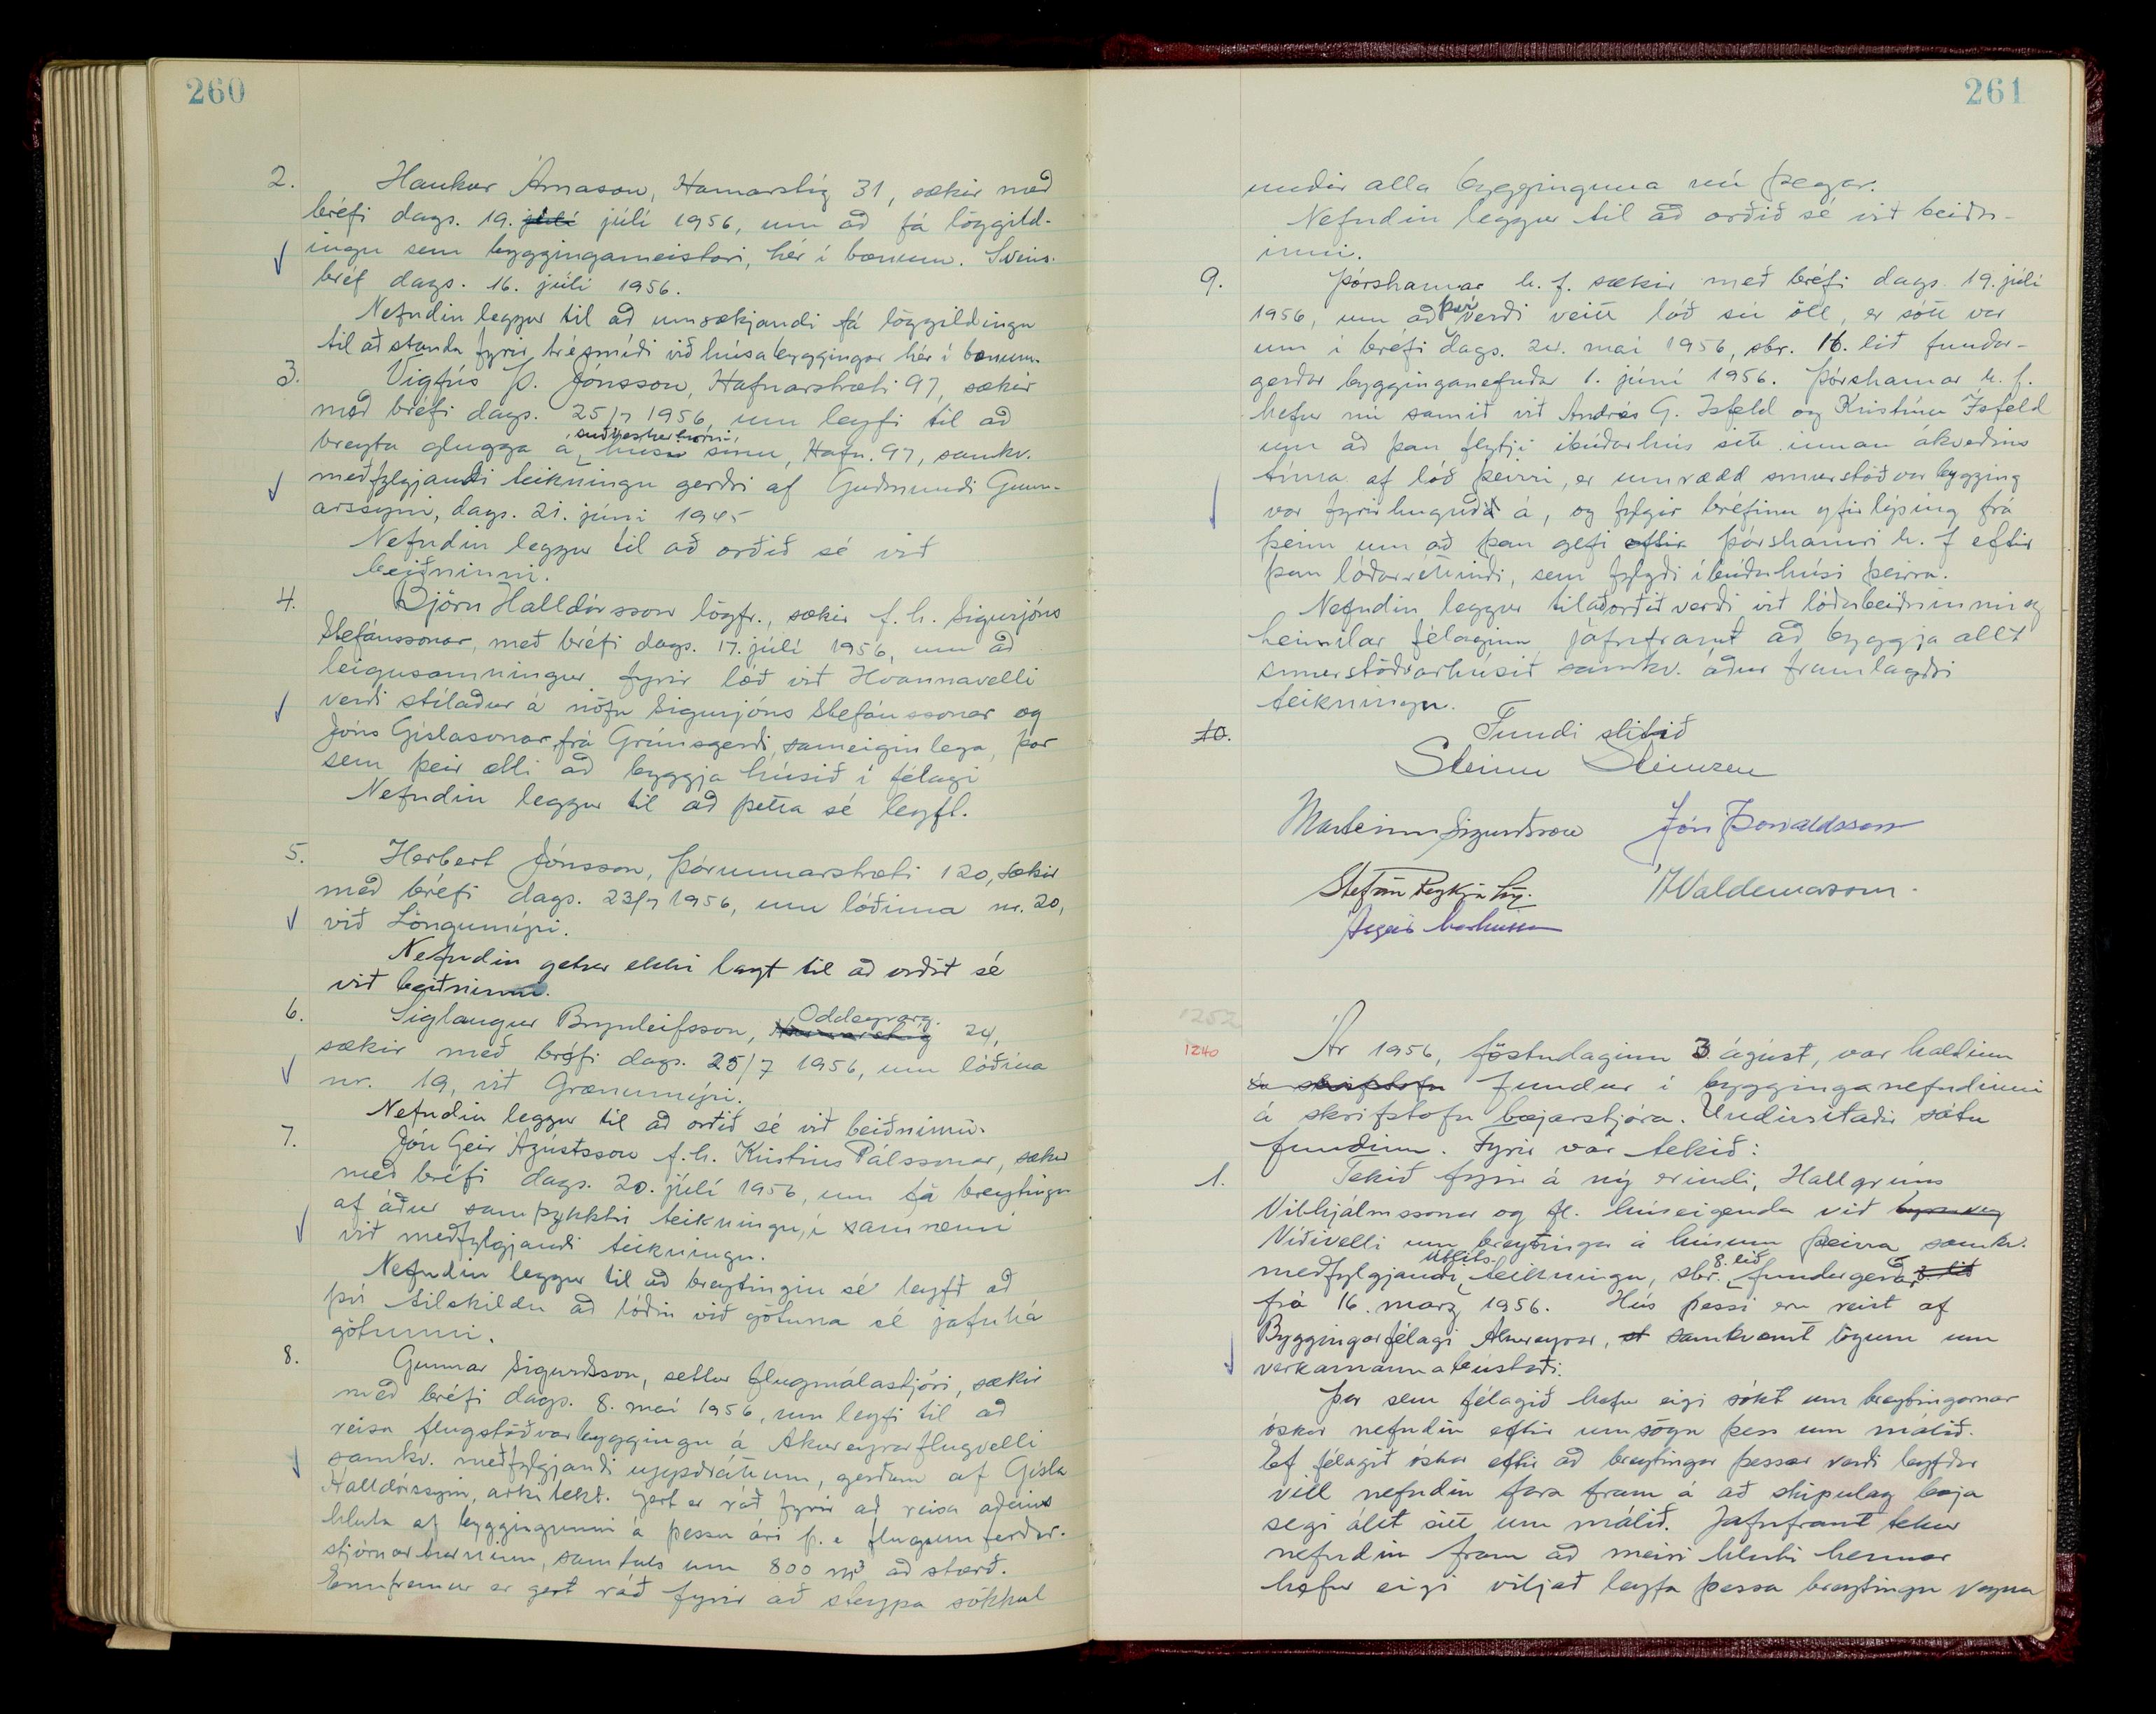 260
2. Haukur Árnason, Hamarstíg 31, sækir með
bréfi dags. 19. júlí júlí 1956, um að fá löggild-
ingu sem byggingameistari, hér í bænum. Sveins-
bréf dags. 16. júlí 1956.
Nefndin leggur til að umsækjandi fá löggildingu
til að standa fyrir trésmíði við húsabyggingar hér í bænum.
3. Vigfús Þ. Jónsson, Hafnarstræti 97, sækir
með bréfi dags. 25/7 1956, um leyfi til að
breyta glugga á suðvesturhorni húsi sínu, Hafn. 97, samkv.
meðfylgjandi teikningu gerðri af Guðmundi Gunn-
arssyni, dags. 21. júní 1945
Nefndin leggur til að orðið sé við
beiðninni.
4. Björn Halldórsson lögfr., sækir f.h. Sigurjóns
Stefánssonar, með bréfi dags. 17. júlí 1956, um að
leigusamningur fyrir lóð við Hvannavelli
verði stílaður á nöfn Sigurjóns Stefánssonar og
Jóns Gíslasonar frá Grímsgerði, sameiginlega, þar
sem þeir ætli að byggja húsið í félagi
Nefndin leggur til að þetta sé leyft.
5. Herbert Jónsson, Þórunnarstræti 120, sækir
með bréfi dags. 23/7 1956, um lóðina nr. 20,
við Löngumýri.
Nefndin getur ekki lagt til að orðið sé
við beiðninni.
6. Siglaugur Brynleifsson, Hamarstíg Oddeyrarg. 24,
sækir með bréfi dags. 25/7 1956, um lóðina
nr. 19, við Grænumýri.
Nefndin leggur til að orðið sé við beiðninni.
7. Jón Geir Ágústsson f.h. Kristins Pálssonar, sækir
með bréfi dags. 20. júlí 1956, um fá breytingu
af áður samþykktri teikningu, í samræmi
við meðfylgjandi teikningu.
Nefndin leggur til að breytingin sé leyfð að
því tilskildu að lóðin við götuna sé jafnhá
götunni.
8. Gunnar Sigurðsson, settur flugmálastjóri, sækir
með bréfi dags. 8. maí 1956, um leyfi til að
reisa flugstöðvarbyggingu á Akureyrarflugvelli
samkv. meðfylgjandi uppdráttum, gerðum af Gísla
Halldórssyni, arkitekt. Gert er ráð fyrir að reisa aðeins
hluta af byggingunni á þessu ári þ.e. flugumferðar-
stjórnarturninn, samtals um 800 m³ að stærð.
Ennfremur er gert ráð fyrir að steypa sökkul
261
undir alla bygginguna nú þegar.
Nefndin leggur til að orðið sé við beiðn-
inni.
9. Þórshamar h.f. sækir með bréfi dags. 19. júlí
1956, um að því verði veitt lóð sú öll, er sótt var
um í bréfi dags. 24. maí 1956, sbr. 16. lið fundar-
gerðar bygginganefndar 1. júní 1956. Þórshamar h.f.
hefur nú samið við Andrés G. Ísfeld og Kristínu Ísfeld
um að þau flytji íbúðarhús sitt innan ákveðins
tíma af lóð þeirri, er umrædd smurstöðvarbygging
var fyrirhuguð á, og fylgir bréfinu yfirlýsing frá
þeim um að þau gefi eftir Þórshamri h.f eftir
þau lóðarréttindi, sem fylgdi íbúðarhúsi þeirra.
Nefndin leggur til að orðið verði við lóðarbeiðninni og
heimilar félaginu jafnframt að byggja allt
smurstöðvarhúsið samkv. áður framlagðri
teikningu.
10. Fundi slitið
Steinn Steinsen
Marteinn Sigurðsson Jón Þorvaldsson
Stefán Reykja
Ásgeir Markússon
1252
1240
Ár 1956, föstudaginn 3 ágúst, var haldinn
á skrifstofu fundur í bygginganefndinni
á skrifstofu bæjarstjóra. Undirritaðir sátu
fundinn. Fyrir var tekið:
1. Tekið fyrir á ný erindi, Hallgríms
Vilhjálmssonar og fl. húseigenda við Byggðaveg
Víðivelli um breytingu á húsum þeirra samkv.
meðfylgjandi útlits- teikningu, sbr. 8. lið fundargerðar 8. lið
frá 16. marz 1956. Hús þessi eru reist af
Byggingarfélagi Akureyrar, st samkvæmt lögum um
verkamannabústaði.
Þar sem félagið hefur eigi sótt um breytingarnar
óskar nefndin eftir umsögn þess um málið.
Ef félagið óskar eftir að breytingar þessar verði leyfðar
vill nefndin fara fram á að skipulag bæja
segi álit sitt um málið. Jafnframt tekur
nefndin fram að meiri hluti hennar
hefur eigi viljað leyfa þessa breytingu vegna